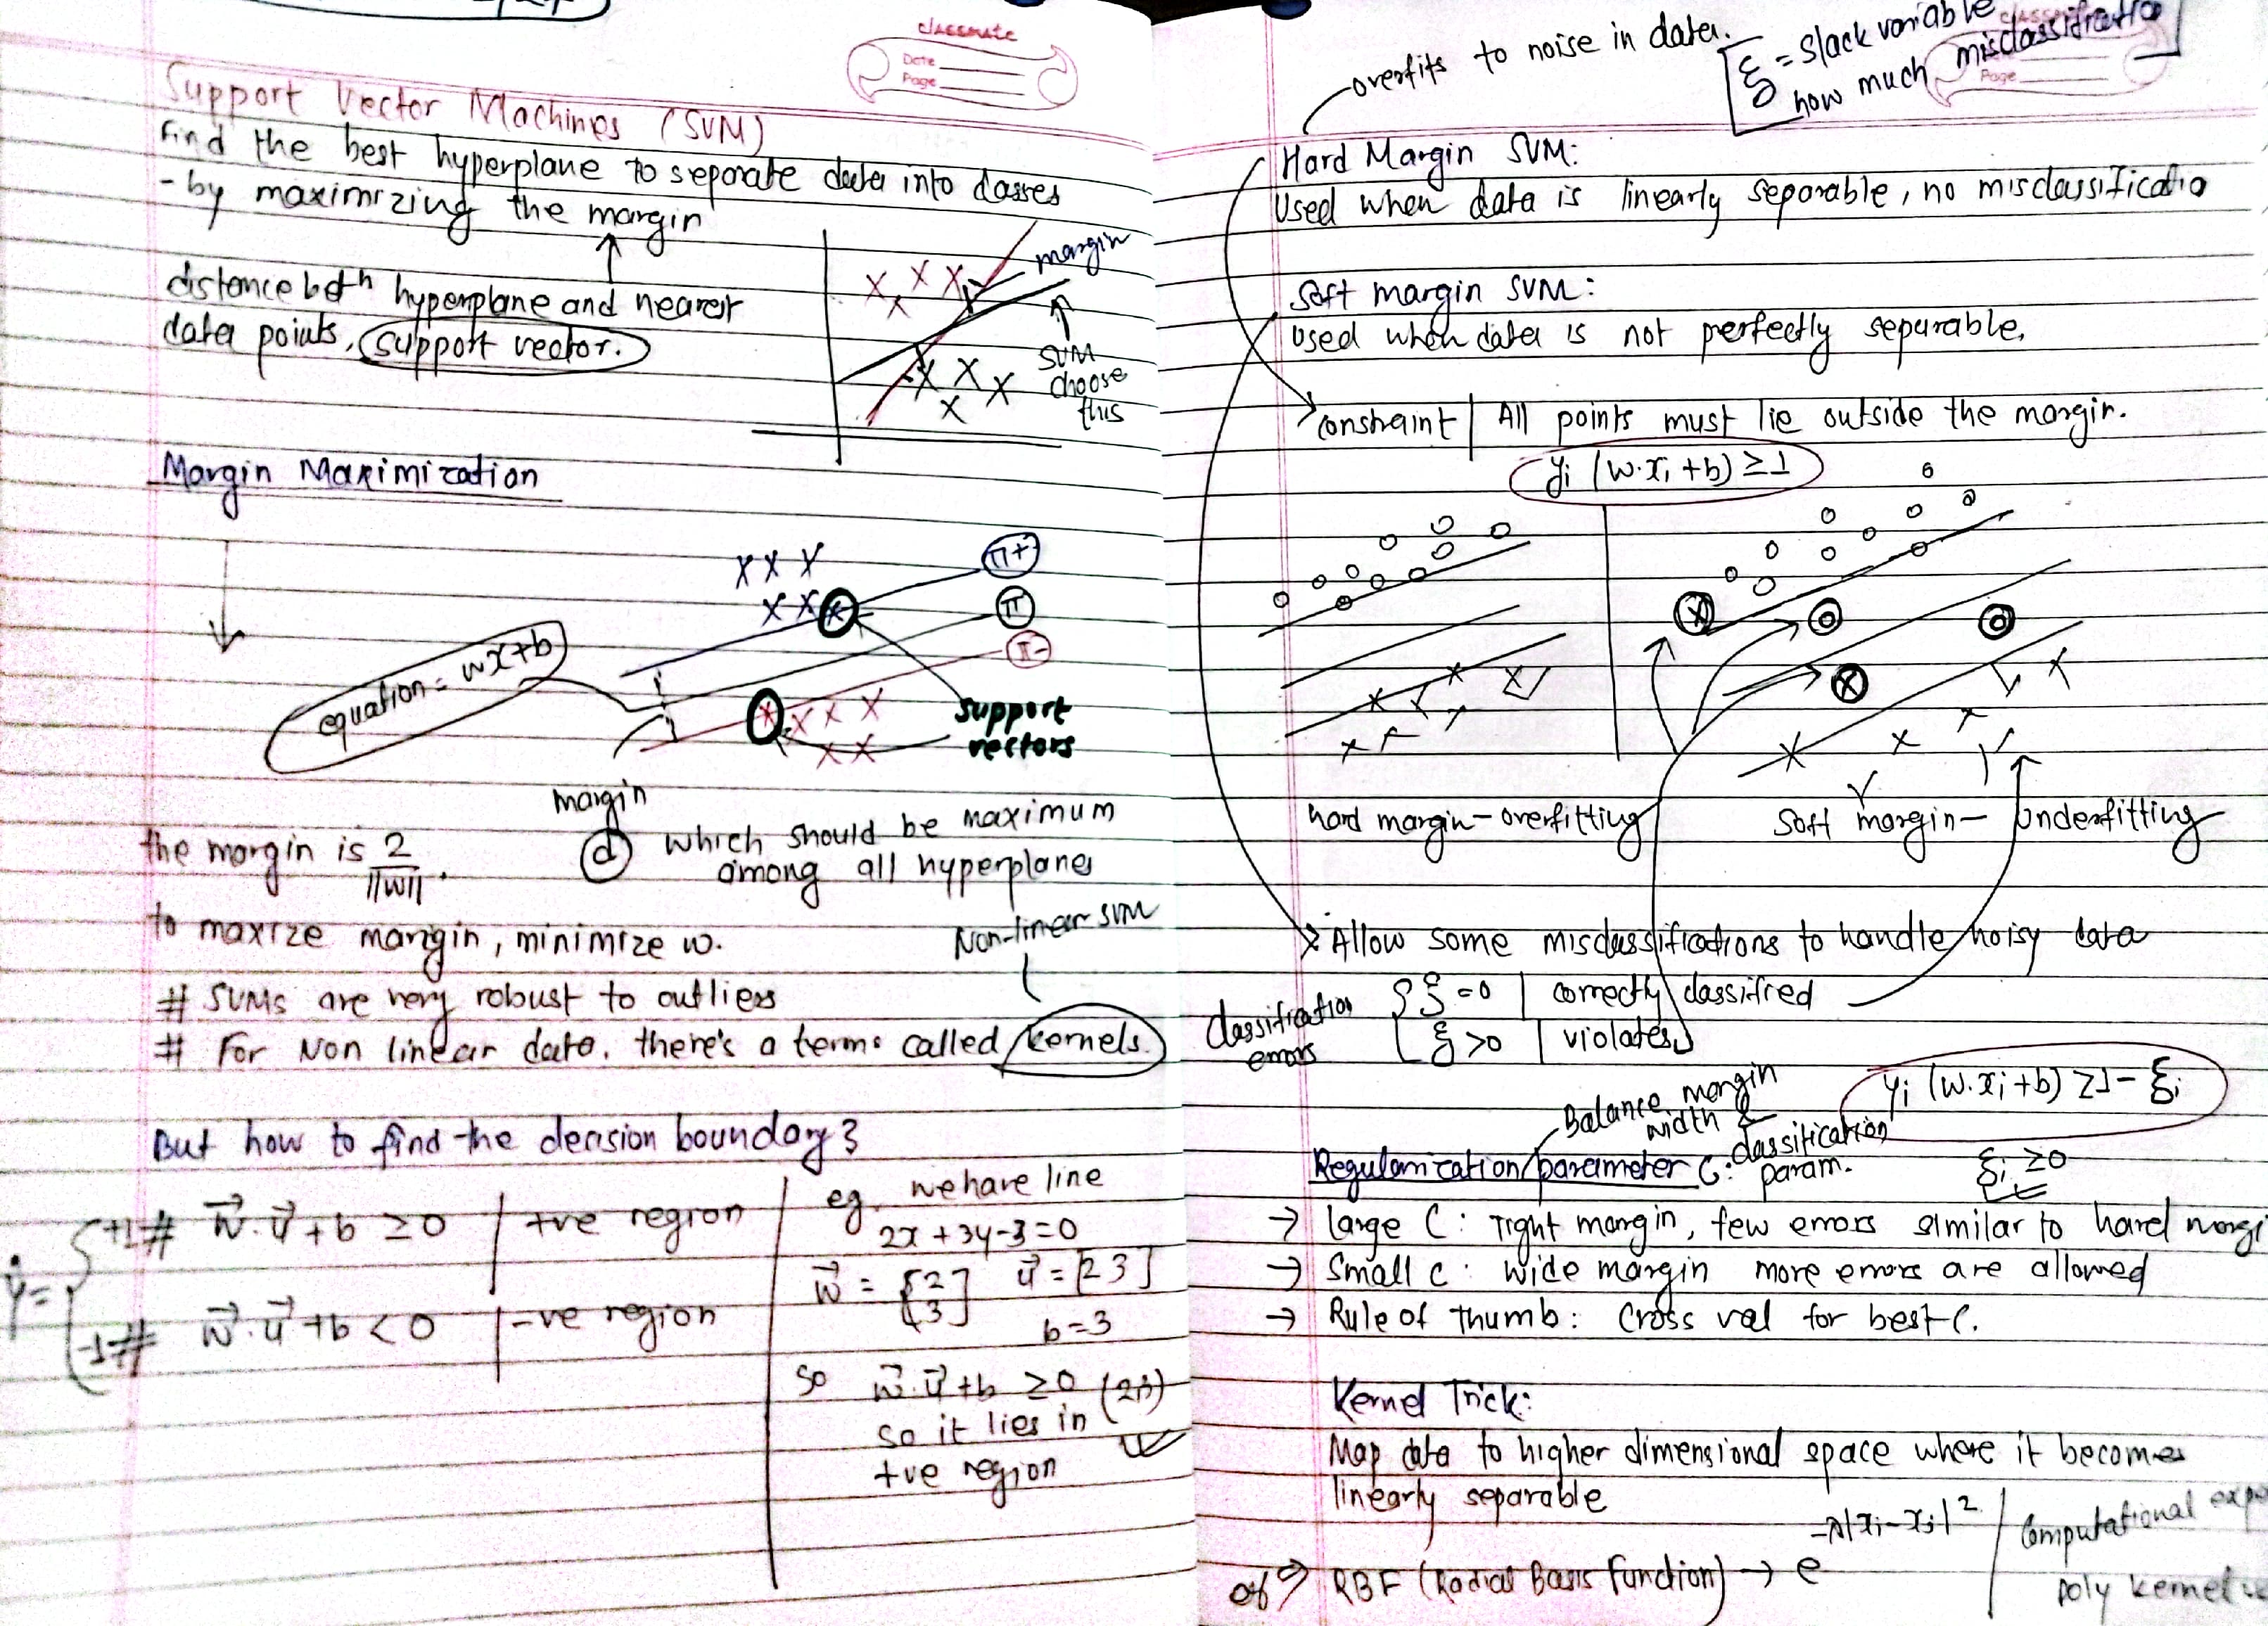 classmate
Date
Page
Support Vector Machines (SVM)
Find the best hyperplane to separate data into classes
- by maximizing the margin
distance betn hyperplane and nearest
data points, support vector.
margin
SVM
choose
this
Margin Maximization
π+
π
π-
equation = wx+b
support
vectors
margin
d which should be maximum
among all hyperplanes
the margin is 2
||w||.
to maxize margin, minimize w.
Non-linear SVM
# SVMs are very robust to outliers
# For Non linear data, there's a terms called kernels.
But how to find the decision boundary?
y =
+1 # w⃗.u⃗ + b ≥ 0 | +ve region
-1 # w⃗.u⃗ + b < 0 | -ve region
eg. we have line
2x + 3y - 3 = 0
w⃗ = [2 3] u⃗ = [2 3]
b = 3
so w⃗.u⃗ + b ≥ 0
so it lies in
+ve region
overfits to noise in data.
ξ = slack variable
how much misclassification
classmate
Page
Hard Margin SVM:
Used when data is linearly separable, no misclassificatio
Soft margin SVM:
Used when data is not perfectly separable.
constraint | All points must lie outside the margin.
yi (w.xi + b) ≥ 1
hard margin - overfitting
Soft margin - Underfitting
Allow some misclassifications to handle noisy data
classification
errors
ξ = 0 | correctly classified
ξ > 0 | violates
yi (w.xi + b) ≥ 1 - ξi
ξi ≥ 0
Balance margin
width &
classification
param.
Regularization parameter C:
→ large C: Tight margin, few errors similar to hard margi
→ Small C: Wide margin more errors are allowed
→ Rule of thumb: Cross val for best C.
Kernel Trick:
Map data to higher dimensional space where it becomes
linearly separable
RBF (Radial Basis Function) → e -λ|xi-xj|2
Computational expe
poly kernel